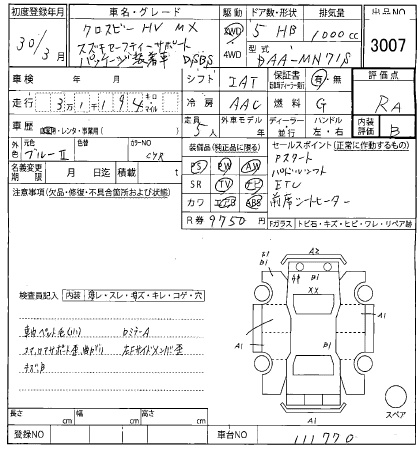 初度登録年月 車名・グレード 駆動 ドア数・形状 排気量 出品NO
30/3月 クロスビー HV MX 2WD 4WD 5 HB 1000cc 3007
スズキセーフティーサポート
パッケージ装着車 DSBS 型式 DAA-MN71S
車検 年 月 シフト IAT 保証書 有・無 評価点
走行 3万1千194 キロ マイル 冷房 AAC 燃料 G RA
車歴 自家用・レンタ・事業用( ) 定員 5人 外車モデル 年 ディーラー 並行 ハンドル 左・右 内装評価 B
色 元色 ブルーII 色替 カラーNO CYR
装備品(純正品に限る) セールスポイント(正常に作動するもの)
名義変更期限 月 日迄 積載 t
SR TV ナビ
カワ エアB ABS
PS PW AW
Pスタート
パドルシフト
ETC
前席シートヒーター
注意事項(欠品・修復・不具合箇所および状態)
R券 9750 円
Fガラス トビ石・キズ・ヒビ・ワレ・リペア跡
検査員記入 内装 汚レ・スレ・キズ・キレ・コゲ・穴
A2
B1 B1
XX
A1 A1
B1
A1
スペア
長さ cm 幅 cm 高さ cm
登録NO 車台NO 111770